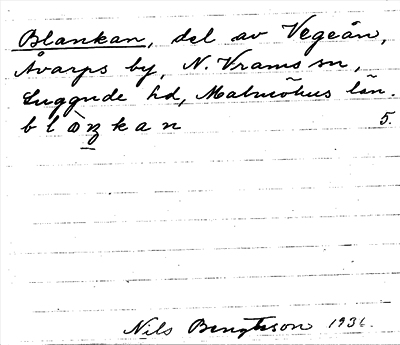 Blankan, del av Vegeån,
Åvarps by, N. Vrams sn,
Luggude hd, Malmöhus län.
blàŋkan 5.
Nils Bengtsson 1936.